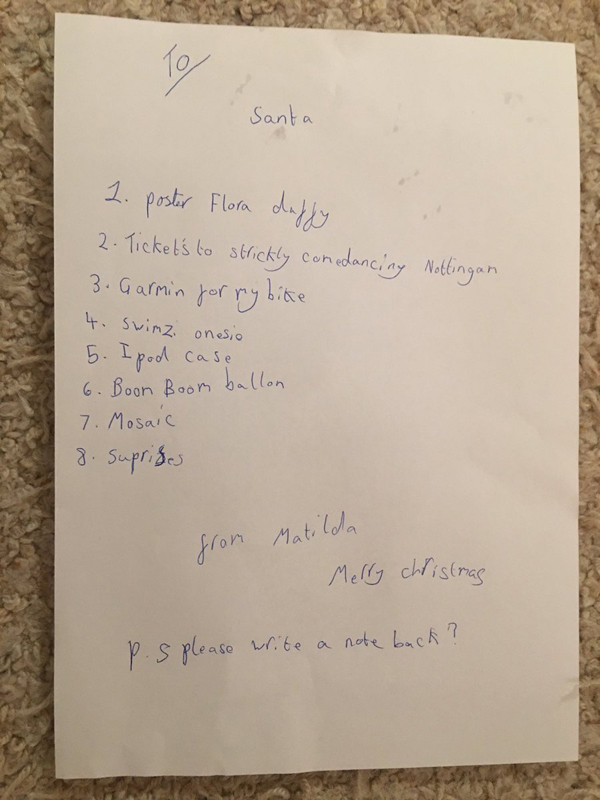 To
Santa
1. poster Flora duffy
2. Ticket's to strickly comedancing Nottingan
3. Garmin for my bike
4. swimz. onesio
5. Ipod case
6. Boom Boom ballon
7. Mosaic
8. suprises
from Matilda
Merry christmas
p.s please write a note back?